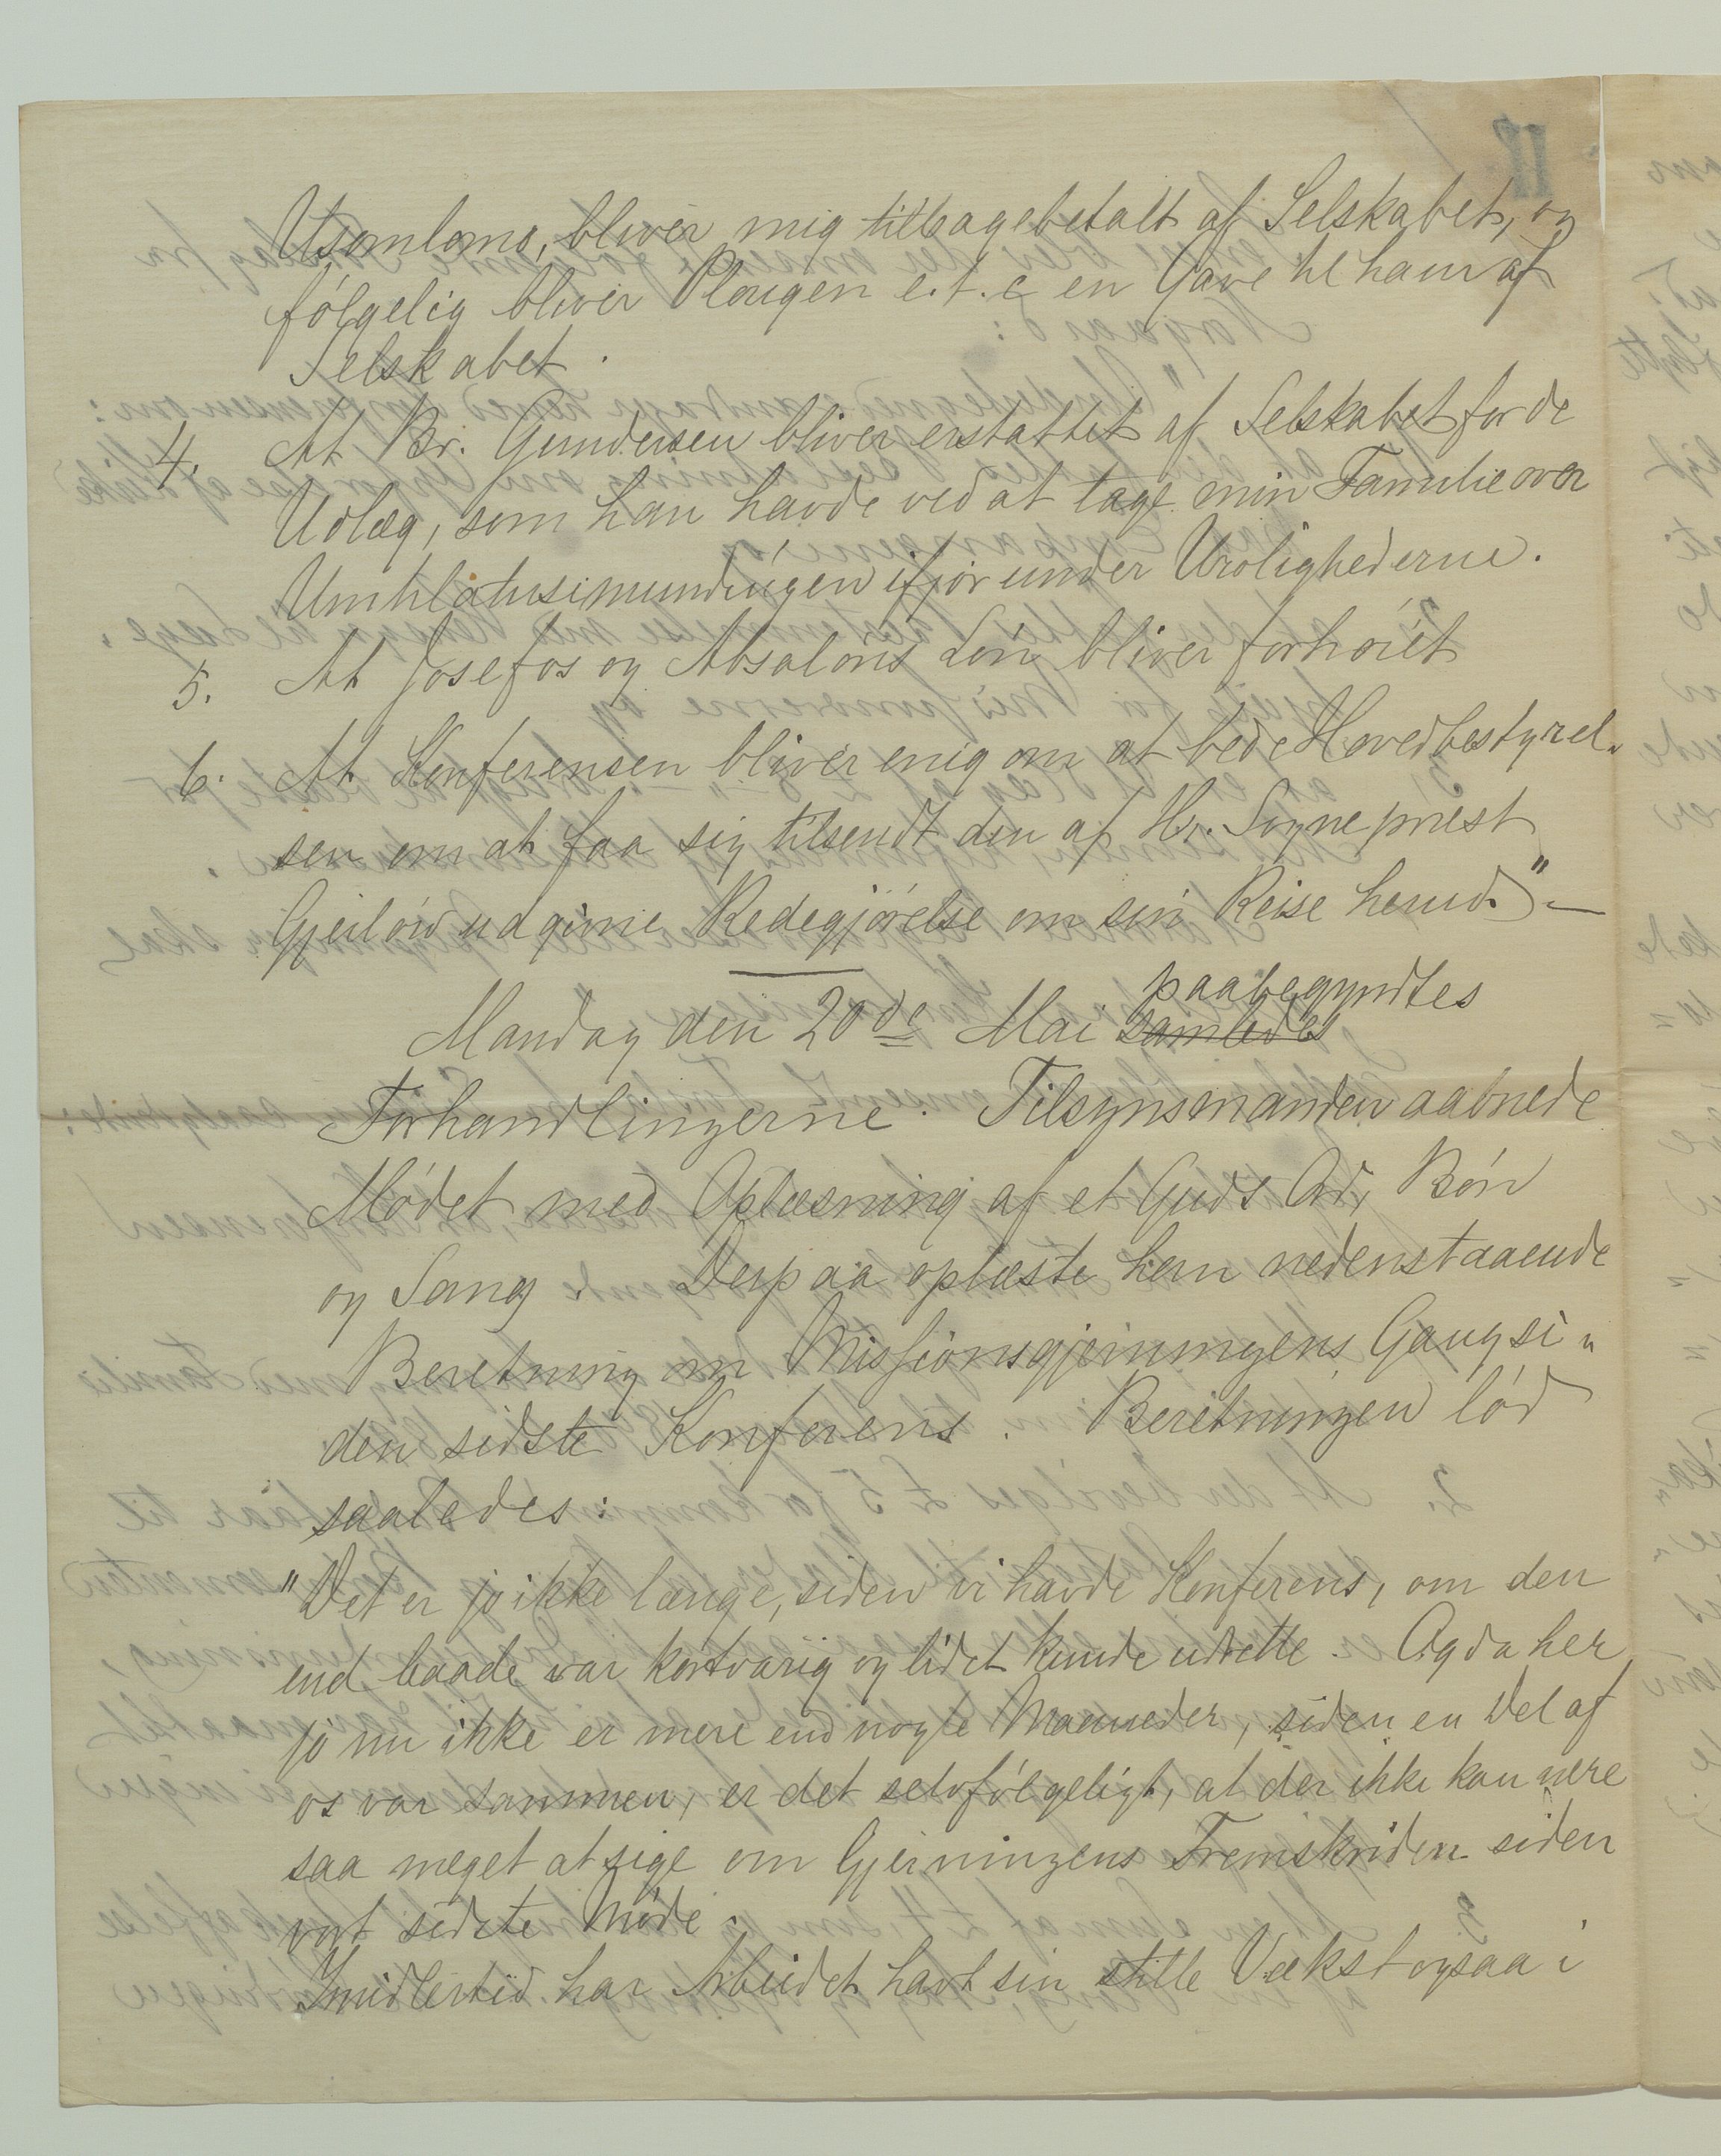 Utsomlomo, bliver mig tilbagebetalt af Selskabet, og
følgelig bliver Plougen e.t.c en Gave til ham af
Selskabet.
4. At Br. Gundersen bliver erstattet af Selskabet for de
Udlæg, som han havde ved at tage min Familie over
Umhlatusimundingen ifjor under Urolighederne.
5. At Josefos og Absalons Løn bliver forhøiet
6. At Konferensen bliver enig om at bede Hovedbestyrel-
sen om at faa sig tilsendt den af Hr. Sogneprest
Gjerløw udgivne Redegjørelse om sin Reise herud." —
paabegyndtes
Mandag den 20de Mai samledes
Forhandlingerne. Tilsynsmanden aabnede
Mødet med Oplæsning af et Guds Ord, Bøn
og Sang. Derpaa oplæste han nedenstaaende
Beretning om Missionsgjerningens Gang si-
den sidste Konferens. Beretningen lød
saaledes:
"Det er jo ikke længe, siden vi havde Konferens, om den
end baade var kortvarig og lidet kunde udrette. Og da her
jo nu ikke er mere end nogle Maaneder, siden en Del af
os var sammen, er det selvfølgeligt, at der ikke kan være
saa meget at sige om Gjerningens Fremskriden siden
vort sidste Møde.
Imidlertid har Arbeidet havt sin stille Vækst ogsaa i